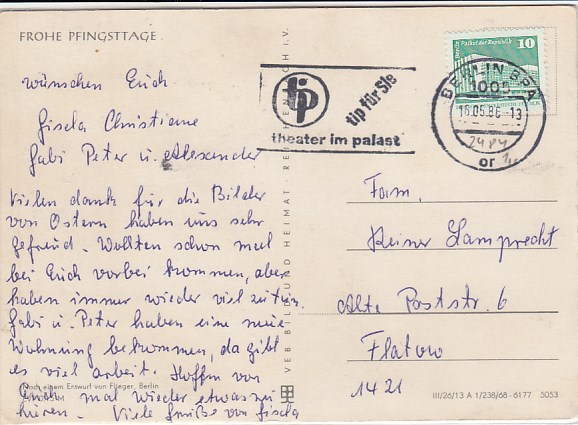 FROHE PFINGSTTAGE
wünschen Euch
Gisela Christiane
Gabi Peter u. Alexander
Vielen dank für die Bilder
von Ostern haben uns sehr
gefreud. Wollten schon mal
bei Euch vorbei kommen, aber
haben immer wieder viel zu tun.
Gabi u. Peter haben eine neue
Wohnung bekommen, da gibt
es viel arbeit. Hoffen von
Euch mal wieder etwas zu
hören. Viele Grüße von Gisela
Nach einem Entwurf von Flieger, Berlin
VEB BILD UND HEIMAT REICHENBACH I. V.
tip
tip für Sie
theater im palast
Berlin Palast der Republik
10
BERLIN BPA
16.05.86-13
or
Fam.
Reiner Lamprecht
Alte Poststr. 6
Flatow
1421
III/26/13 A 1/238/68-6177 5053